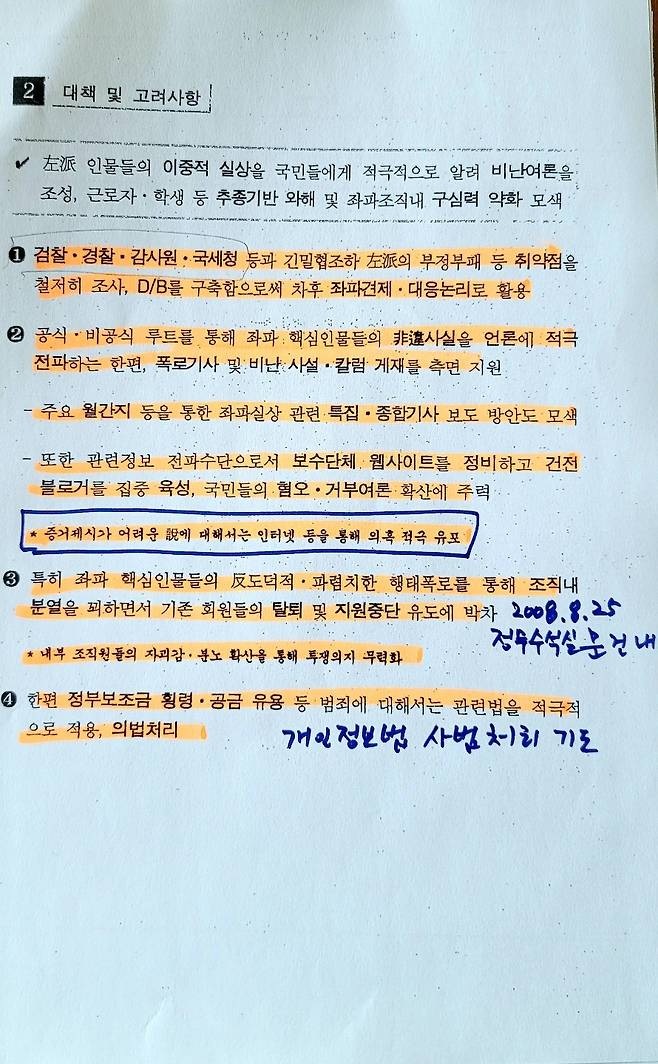 2 대책 및 고려사항
✔ 左派 인물들의 이중적 실상을 국민들에게 적극적으로 알려 비난여론을
조성, 근로자·학생 등 추종기반 와해 및 좌파조직내 구심력 약화 모색
❶ 검찰·경찰·감사원·국세청 등과 긴밀협조하 左派의 부정부패 등 취약점을
철저히 조사, D/B를 구축함으로써 차후 좌파견제·대응논리로 활용
❷ 공식·비공식 루트를 통해 좌파 핵심인물들의 非違사실을 언론에 적극
전파하는 한편, 폭로기사 및 비난 사설·칼럼 게재를 측면 지원
- 주요 월간지 등을 통한 좌파실상 관련 특집·종합기사 보도 방안도 모색
- 또한 관련정보 전파수단으로서 보수단체 웹사이트를 정비하고 건전
블로거를 집중 육성, 국민들의 혐오·거부여론 확산에 주력
* 증거제시가 어려운 說에 대해서는 인터넷 등을 통해 의혹 적극 유포
❸ 특히 좌파 핵심인물들의 反도덕적·파렴치한 행태폭로를 통해 조직내
분열을 꾀하면서 기존 회원들의 탈퇴 및 지원중단 유도에 박차 2008.8.25
정무수석실 문건 내
* 내부 조직원들의 자괴감·분노 확산을 통해 투쟁의지 무력화
❹ 한편 정부보조금 횡령·공금 유용 등 범죄에 대해서는 관련법을 적극적
으로 적용, 의법처리
개인정보법 사법처리 기도